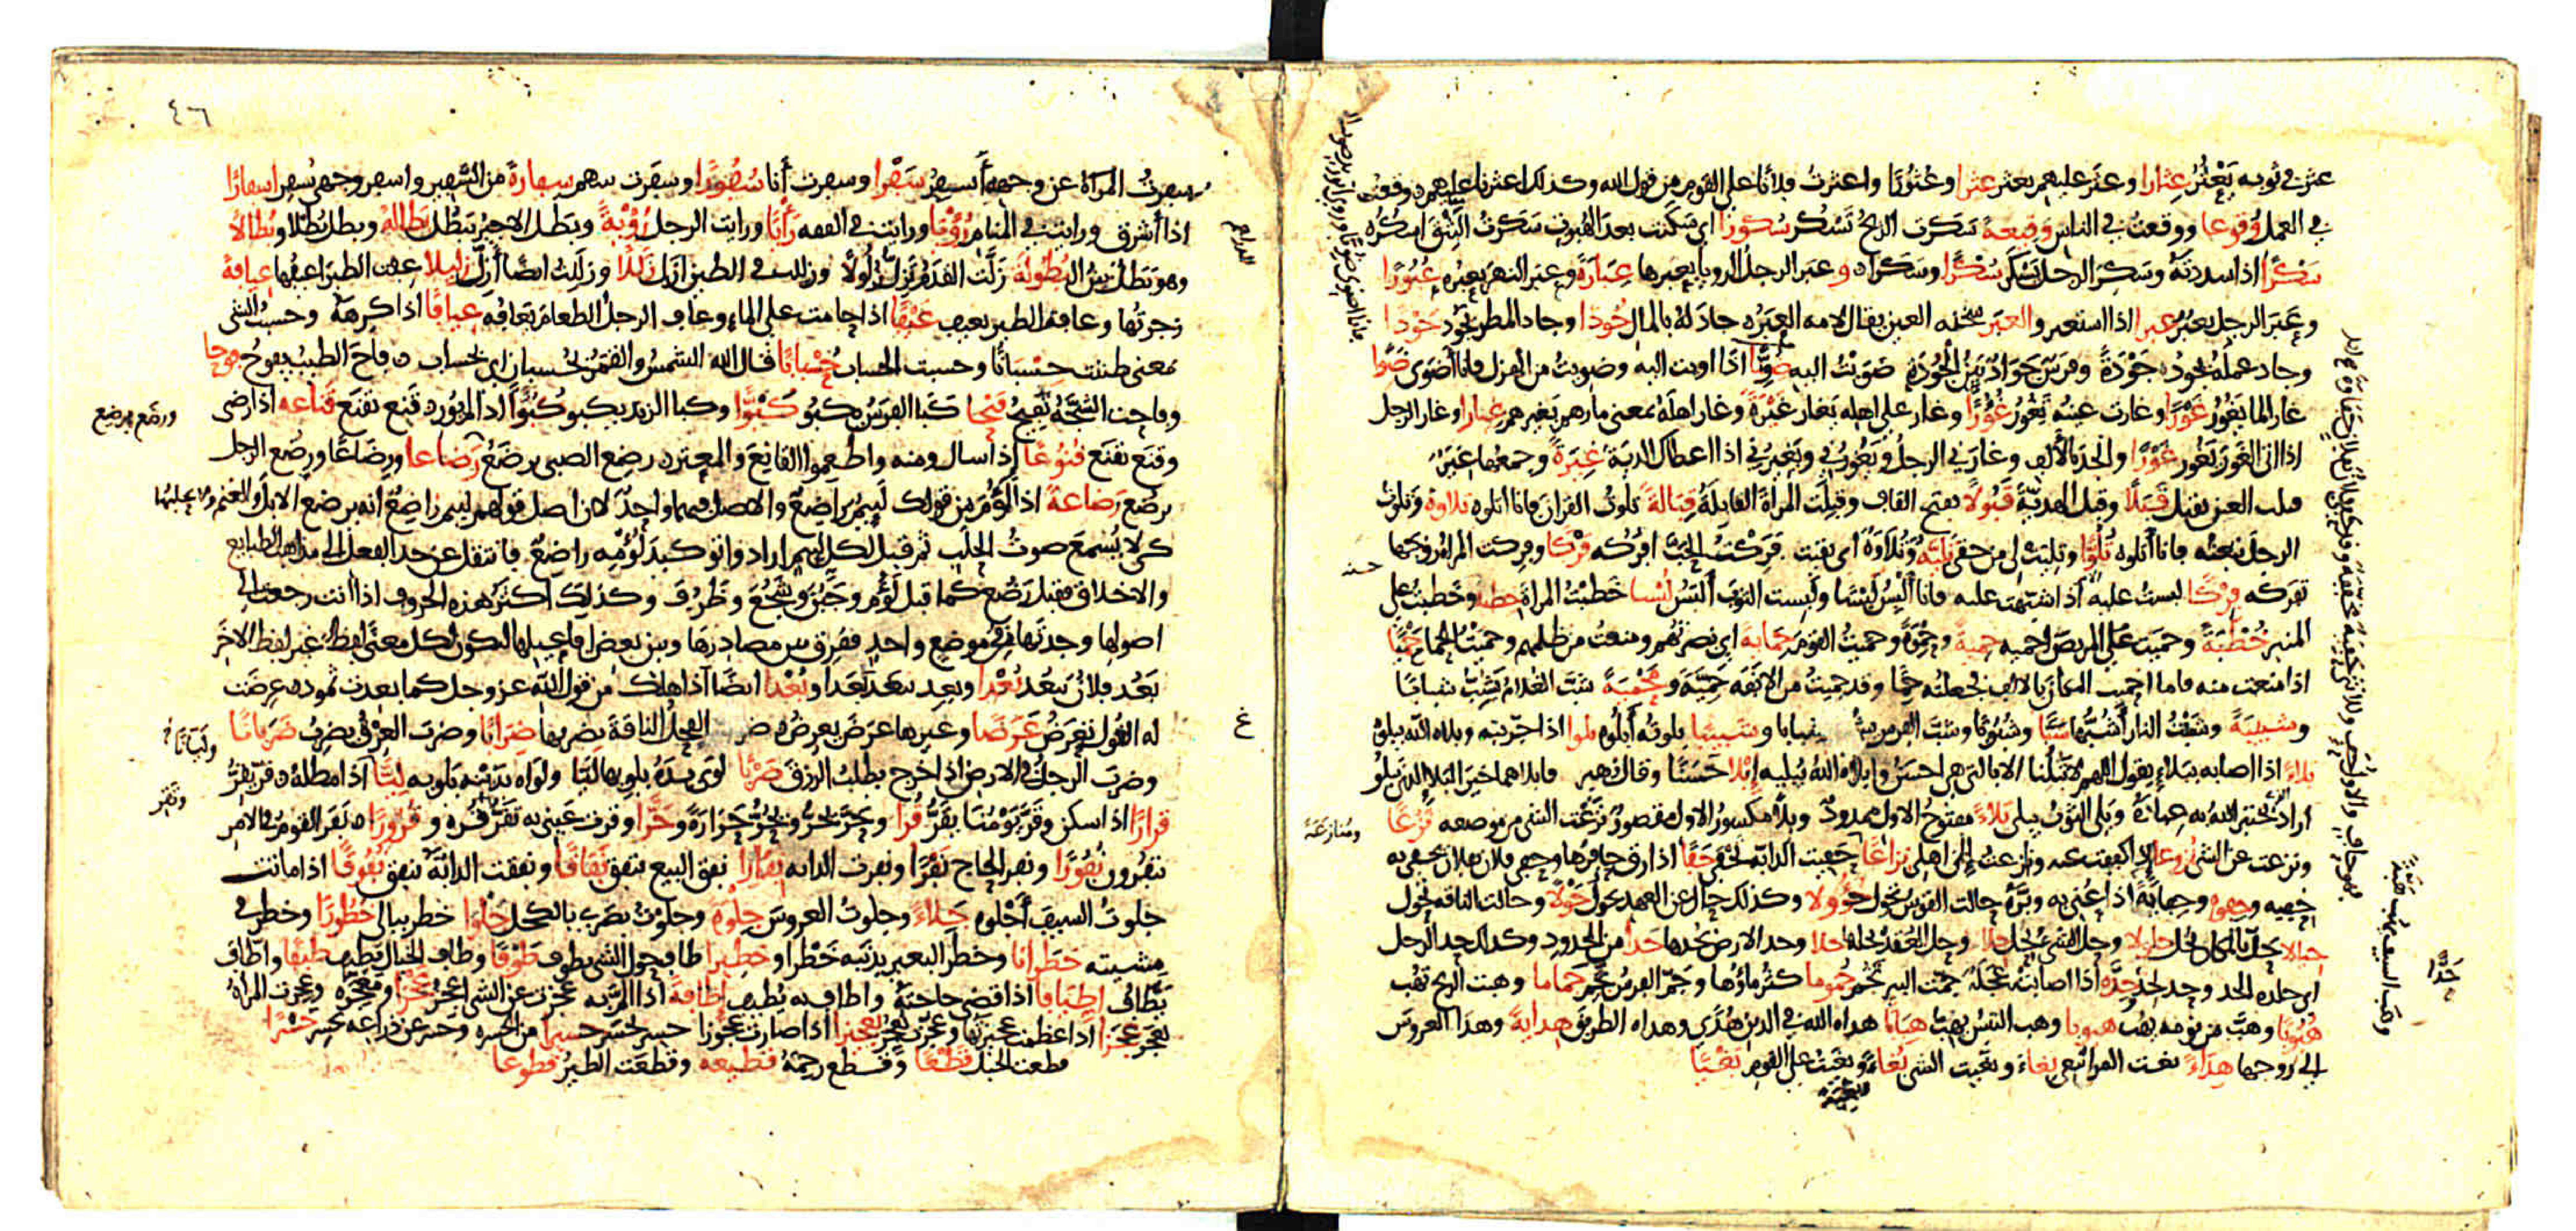 عثر في ثوبه يَعْثُرُ عِثارا وعثر عليهم يعثر عثرا وعُثُورًا واعثرتُ فلانا على القوم من قول الله وكذلك اعثرنا عليهم ووقعتُ
في العمل وُقوعا ووقعتُ في الناس وَقِيعةً سَكَرت الريحُ تَسْكُر سُكورًا اي سَكَنَت بعد الهُبوب سَكرتُ البَثْقَ اسكُرُه
سَكْرًا اذا سددتَهُ وسَكِرَ الرجل يَسْكَر سُكْرًا وسَكَرا وعبَر الرجلُ الرويا يعبرها عِبَارَةً وعبَر النهرَ يعبُره عُبُورًا
وعَبِرَ الرجل يعبَر عبرا اذا استعبر والعَبَر سُخْنه العين يقال لامه العَبَر جادَ لهُ بالمال جُودًا وجاد المطر يَجُود جَوْدا
وجاد عملُه يجُود جَوْدَةً وفرسٌ جَوَادٌ بيّنُ الجُودَةِ ضَوَيْتُ اليه ضُوِيًّا اذا اويت اليه وضوِيتُ من الهزل فانا أضْوَى ضَوًا
غار الما يَغُورُ غَوْرًا وغارت عينه تَغُورُ غُؤُرًا وغار على اهله يَغار غَيْرَةً وغار اهلَهُ بمعنى مارهم يَغيرهم غِيارا وغار الرجل
اذا اتى الغَورَ يَغُور غَوْرًا وانجَدَ بالألف وغارَني الرجلُ يَغُورُني ويَغيرُني اذا اعطاك الديَةَ غِيَرةً وجمعها غِيَرٌ
قبلت العين تقبل قَبَلًا وقبل الهديّة قَبُولًا بفتح القاف وقبِلَت المراةَ القابلةُ قِبَالةً تلوتُ القران فانا اتلوه تلاوة وتلوتُ
الرجلَ تبعته فانا أتلوه تُلُوًّا وتليت لي من حقي تَلِيَّة وتُلاوَة اى بقيت فَرَكْتُ الحَبَّ افرُكه فَرْكا وفركت المراة زوجها
تفرَكه فِرْكًا لبستُ عليه اذا شبّهت عليه فانا أَلْبِسُ لَبْسًا ولَبِست الثوبَ ألبَسُ لُبْسا خَطَبْتُ المراةَ خِطبةً وخَطبتُ على
المنبر خُطْبَةً وحَمَيت على المريض احميه حِميةً وحِمْوَةً وحميتُ القوم حِمايةً اي نصرتهم ومنعتُ من ظلمهم وحميتُ الحمى حَمْيًا
اذا منعت منه فاما احميت المكان بالالف فجعلته حِمًا وقد حميتُ من الانَفة حَمِيَّةً ومَحْمِيةً شبّ الغلام يَشِبّ شبابا
وشبيبةً وشَبَبْتُ النار أَشُبُّها شَبًّا وشُبُوبًا وشبّ الفرس يشب شبابا وشَبيبا بلوتُه أبلُوه بلوا اذا جرّبته وبلاه الله يبلوه
بلاءً اذا اصابه ببَلاءٍ يقول اللهم لا تَبْلُنا الا بالتى هي احسن وابلاه اللهُ يُبليه إبْلاءً حَسَنًا وقال زهير فابلاهما خيرَ البَلاءِ الذي يبلو
اراد يختبر اللهُ به عبادَهُ وبَلى الثوبُ يبلى بَلاءً مفتوحُ الاول ممدودٌ وبِلًا مكسورُ الاول مقصورٌ نزعت الشى من موضعه نَزْعًا
ونزعت عن الشى نُزوعا اذا كففت عنه ونازعتُ إلى اهلى نزاعًا حَفِيت الدابّة تحفى حَفًا اذا رقّ حافرُها وحفي فلان بفلان يحفى به
حِفيه وحِفوه وحِفايَةً اذا عُني به وبرّه حالت القوس تحُول حُؤُولا وكذلك حال عن العهد يحُول حَوْلًا وحالت الناقة تحول
حيالا يحلّ بالمكان يحُل حلولا وحلّ الشى يحِل حِلّا وحلّ العُقَد يحُلها حلّا وحدّ الارض يحُدها حَدًّا من الحدود وكذلك حد الرجل
اي جلده الحدّ وحد يحِدّ حِدَّةً اذا اصابته عَجَلَة جمّت البير تجُمّ جُموما كثُر ماؤها وجَمّ الفرس يَجُمّ جَماما وهبت الريح تهُب
هُبُوبًا وهَبّ من نومه يهُب هبوبا وهبّ التيس يهبّ هِبَابًا هداه الله في الدين هُدًى وهداه الطريقَ هِدايةً وهدَا العروسَ
الى زوجها هِدَاءً بغت المراة تبغي بِغاءً وبغيت الشى بُغاءً وبغيت على القوم بَغْيًا
جاد
حسنة
ومُنازعَةً
وهَبّ السيف يهُبّ هَبَّةً
حَدًّا
٤٦
سفرتُ المرأة عن وجهها أسفِرُ سَفْرا وسفرت أنا سُفُورًا وسفَرت بينهم سِفارةً من السَّفير واسفر وجهي يُسفر اسفارًا
اذا أشرق ورايت في المنام رُؤْيا ورايت في الفقه رَأْيًا ورايت الرجل رُؤْيةً وبَطَل الاجيرُ يَبطُل بَطالةً وبطل بُطْلا وبُطلانًا
وهو بَطَلٌ بيّن البُطُولَة زَلّت القدمُ تَزِلّ زُلُولًا وزللت في الطين ازلّ زَلَلًا وزَلَلتُ ايضًا أَزِلّ زليلا عِفت الطير اعيفها عِيافةً
زجرتُها وعافت الطير تعيف عَيْفًا اذا حامت على الماء وعاف الرجل الطعام يَعافُه عِيافًا اذا كرِهَهُ وحسِبتُ الشى
بمعنى ظننت حِسْبَانًا وحسبت الحساب حُسْبانًا قال الله الشمسُ والقمرُ بحُسبان اي بحساب فاحَ الطيبُ يفوحُ فوحا
وفاحت الشجَّةُ تَفيحُ فَيْحا كَبَا الفرَسُ يكبُو كَبْوًا وكبا الزند يكبو كُبُوًّا اذا لم يُورِ قَنِع يقنَع قَناعة اذا رضى
وقَنَع يَقنَع قُنُوعًا إذا سال ومنه واطعِموا القانِعَ والمعترّ رضِع الصبى يرضَعُ رَضاعا ورِضَاعًا ورضُع الرجل
يرضُع رضاعةً اذا لَؤُم من قولك لَئِيمٌ رَاضِعٌ والاصل فيهما واحدٌ لان اصل قولهم لئيمٌ راضِعٌ انه يرضع الابل والغنم ولا يحلبها
كى لا يُسْمعَ صوتُ الحلَب ثم قيل لكل لئيم اراد وا توكيدَ لُؤْمِه راضعٌ فانتقل عن حد الفعل الى مذاهب الطبايع
والاخلاق فقيل رَضُع كما قيل لَؤُم وجَبُن وشجُعَ وظَرُفَ وكذلك أكثرُ هذه الحروف اذا انت رجعت الى
اصولها وجدتَها من موضعٍ واحدٍ ففُرق بين مصادرها وبين بعض افاعيلها ليكون لكل معنًى لفظٌ غير لفظ الاخَرِ
بَعُدَ فلانٌ يَبعُد بُعْدا وبعِدَ يبعَد بَعَدا وبُعْدا ايضًا اذا هلك من قول الله عز وجل كما بعدت ثمود عرضَت
له الغُول تعرِض عَرَضا وغيرها عَرَضَ يعرِضُ ضرب الفحلُ الناقةَ يضربها ضِرَابًا وضرَب العِرْقُ يضرِبُ ضَرَبانًا
وضربَ الرجلُ في الارض اذا خرج يطلبُ الرزقَ ضَرْبًا لوَى يدهُ يلويها لَيًّا ولَوَاه بدَيْنه يلويه لَيّانًا اذا مطلهُ قَرّ يقِرُّ
قرارًا اذا سكن وقَرّ يَوْمُنا يقَرُّ قُرًّا وحَرّ يحِرّ ويحَرّ حَرَارةً وحَرًّا وقرّت عَيني به تقَرّ قُرّه وقُرورًا نَفَر القومُ في الامرِ
ينفُرون نُفُورًا ونفر الحاج نَفْرًا ونفرت الدابة نِفارا نفق البيع ينفق نَفَاقًا ونفقت الدابّة تنفق نُفُوقًا اذا ماتت
جلوتُ السيفَ أجْلوه جِلاءً وجلوتُ العروسَ جِلْوَةً وجلوتُ بصَري بالكحل جَلْوا خطر ببالى خُطُورًا وخطر في
مِشيته خَطَرانًا وخطر البعير بذنَبه خَطْرا وخطيرا طاف حول الشى يطوف طَوْفًا وطاف الخيال يَطيف طَيْفًا واطّاف
يَطّافُ اطِّيافًا اذا قضى حاجتهُ واطاف به يُطيف إطافةً اذا المَّ به عجَزت عن الشى اعجِزُ عَجْزًا ومَعجِزَة وعجِزت المراة
تعجَز عَجَزًا اذا عظمت عجيزتُها وعجّزَت تُعجّزُ تعجيزًا اذا صارت عجُوزًا حسِر يَحسَر حَسَرا من الحَسرة وحسَر عن ذراعه يحسِر حَسْرًا
قطعت الحبل قَطْعًا وقطع رحِمَهُ قَطيعة وقطعَت الطيرُ قُطوعا
الدراهم
ورضَع يرضِع
ولَيَّانًا
ونَفر
غ